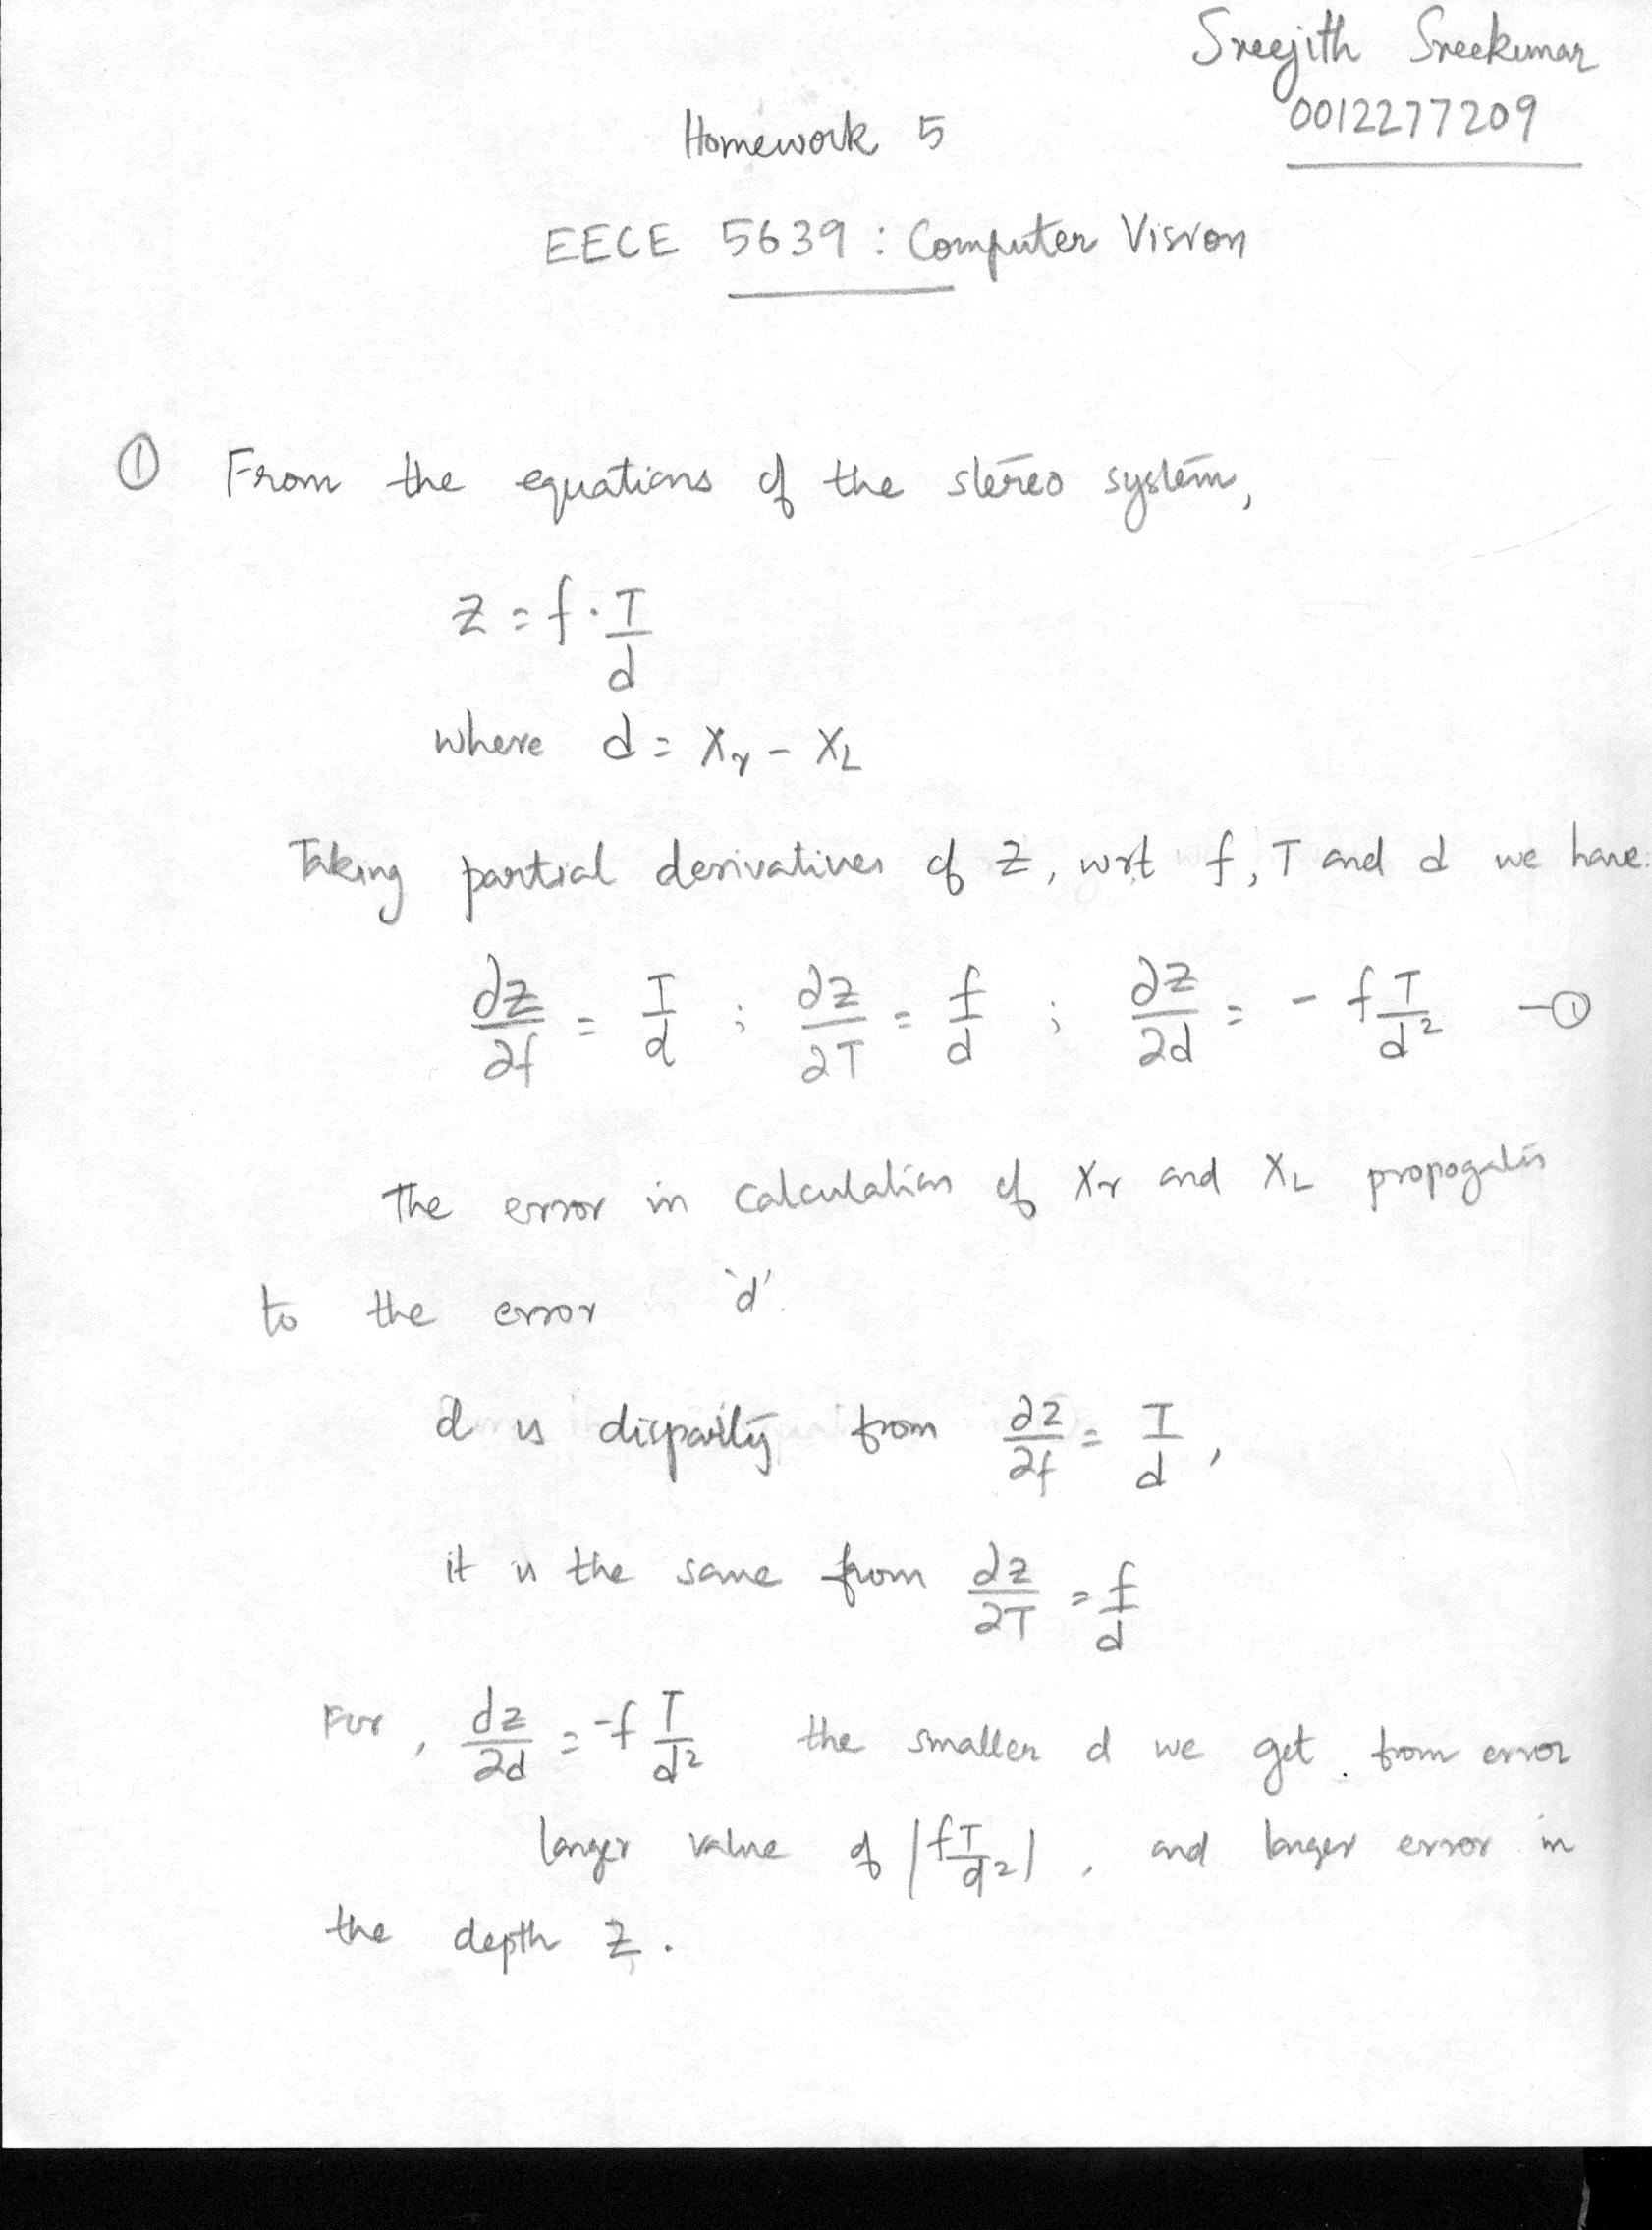 Sreejith Sreekumar
0012277209
Homework 5
EECE 5639 : Computer Vision
① From the equations of the stereo system,
z = f . T/d
where d = Xr - XL
Taking partial derivatives of z, wrt f, T and d we have:
∂z/∂f = T/d ; ∂z/∂T = f/d ; ∂z/∂d = - f T/d² -①
The error in calculation of Xr and XL propogates
to the error in 'd'.
d is disparity from ∂z/∂f = T/d ,
it is the same from ∂z/∂T = f/d
For , ∂z/∂d = -f T/d² the smaller d we get . from error
larger value of |f T/d²| , and larger error in
the depth z .